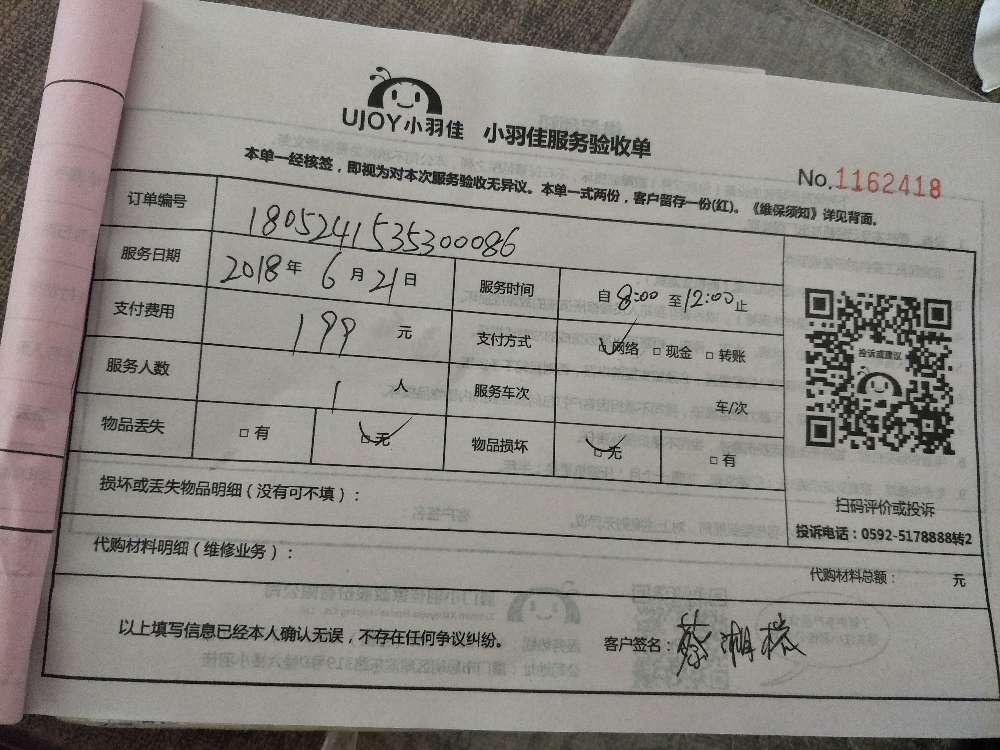 UJOY小羽佳 小羽佳服务验收单
No.1162418
本单一经核签，即视为对本次服务验收无异议。本单一式两份，客户留存一份(红)。《维保须知》详见背面。
订单编号 180524153530086
服务日期 2018年6月21日 服务时间 自8:00至12:00止
支付费用 199元 支付方式 □网络 □现金 □转账
服务人数 1人 服务车次 车/次
物品丢失 □有 □无 物品损坏 □无 □有
投诉或建议
扫码评价或投诉
投诉电话：0592-5178888转2
损坏或丢失物品明细（没有可不填）：
代购材料明细（维修业务）：
代购材料总额： 元
以上填写信息已经本人确认无误，不存在任何争议纠纷。
客户签名：蔡湘